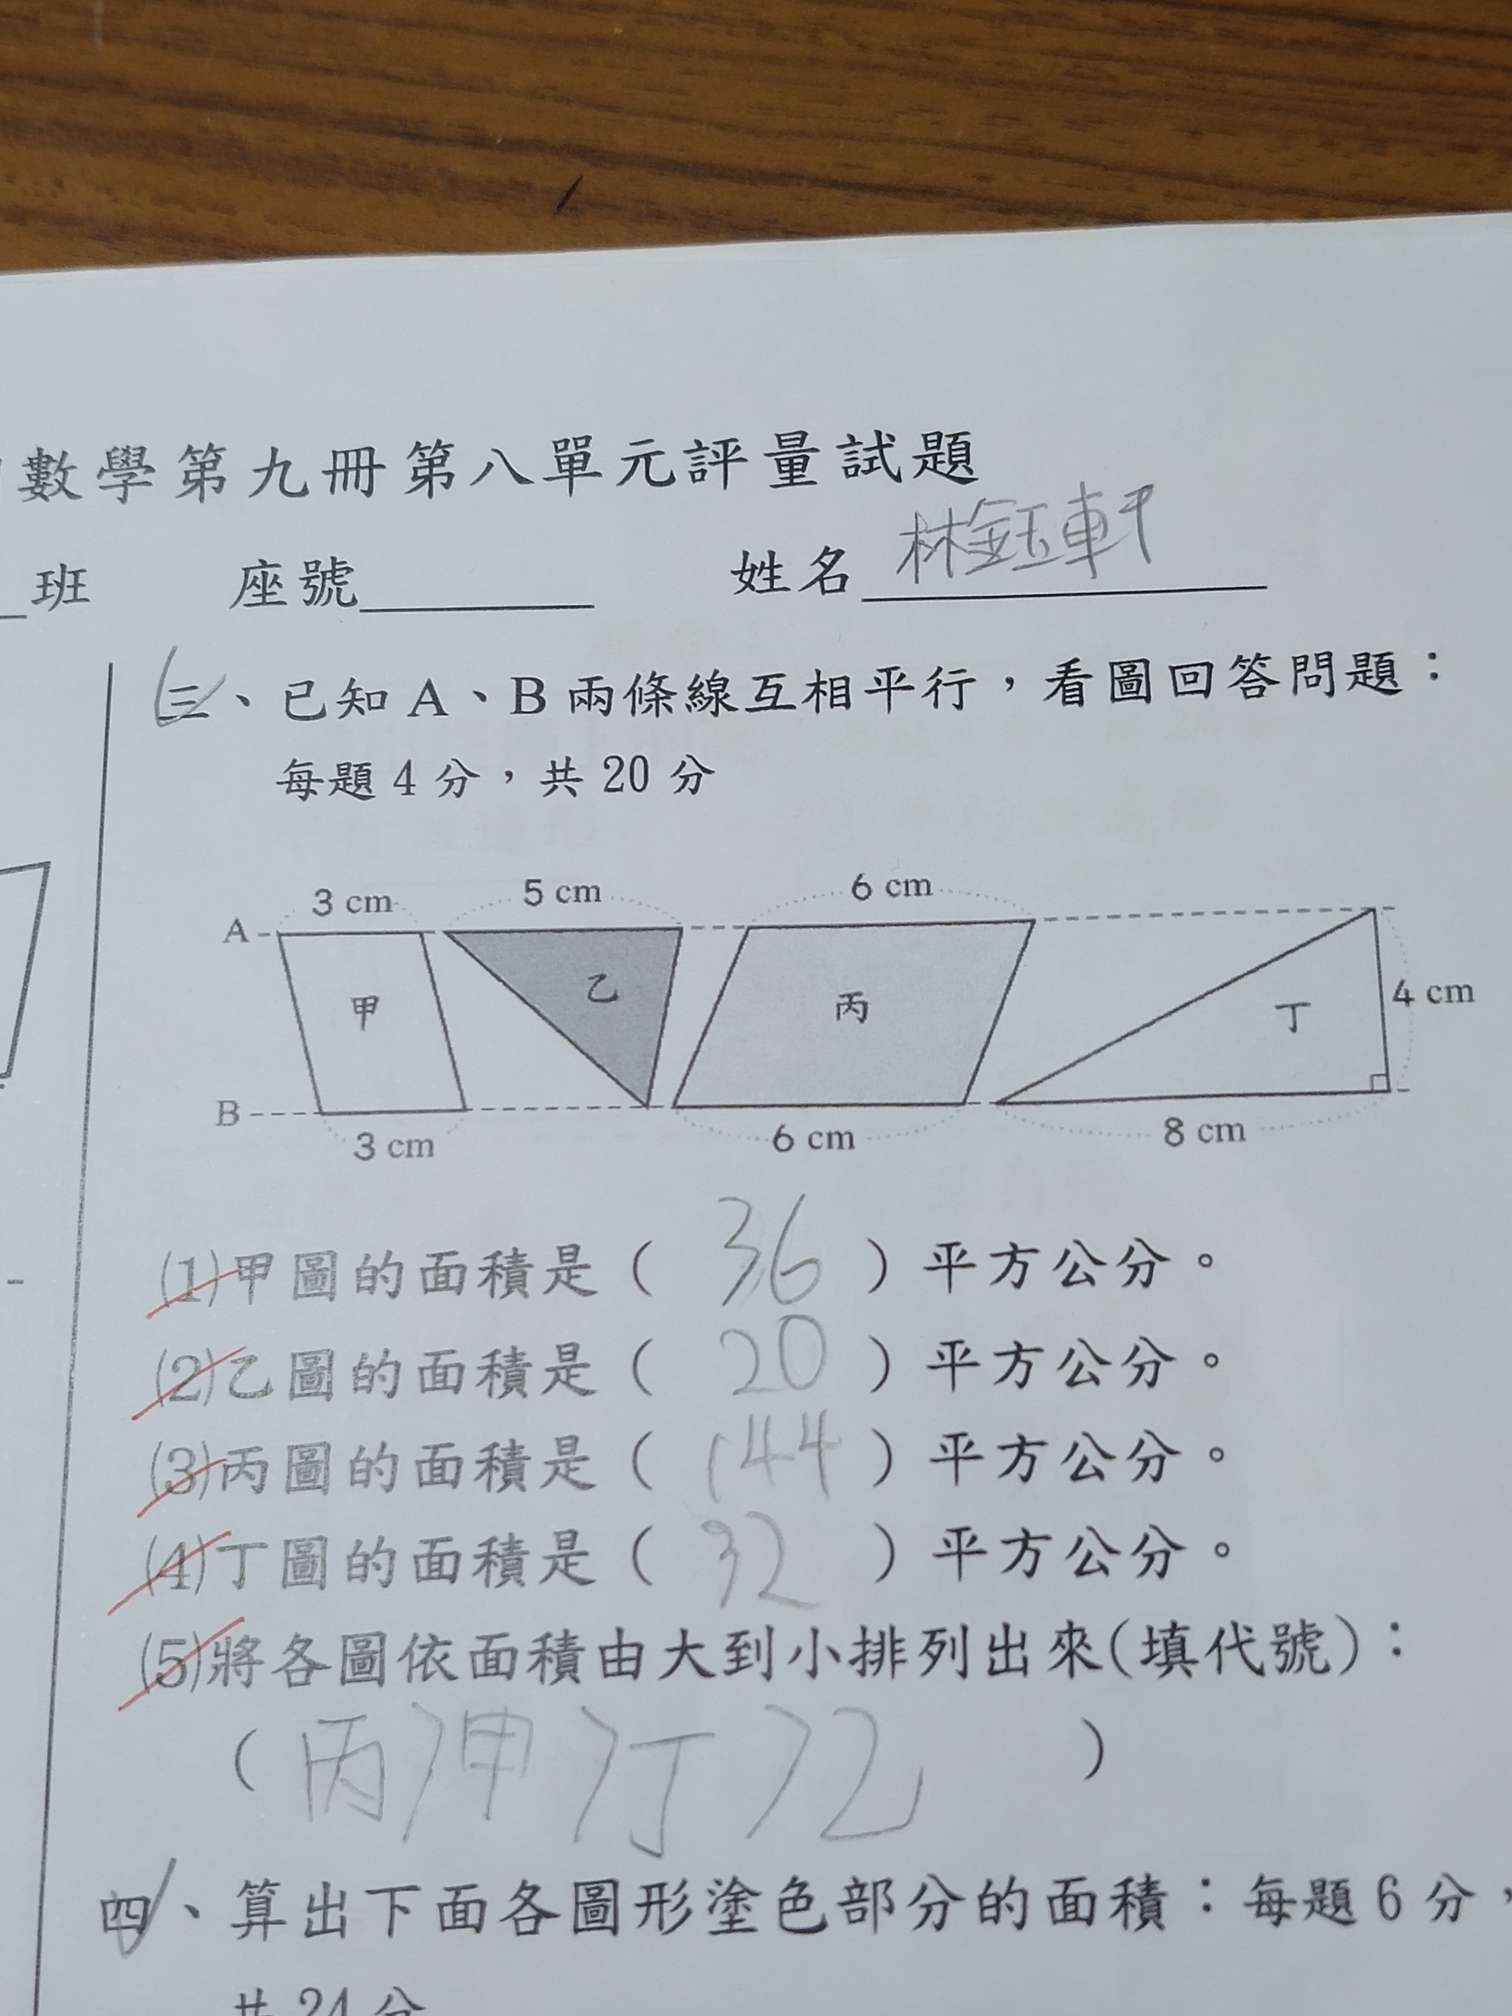 數學第九冊第八單元評量試題
班 座號 姓名 林鈺軒
三、已知 A、B 兩條線互相平行，看圖回答問題：
每題 4 分，共 20 分
3 cm 5 cm 6 cm
A
甲 乙 丙 丁 4 cm
B
3 cm 6 cm 8 cm
(1)甲圖的面積是（ 36 ）平方公分。
(2)乙圖的面積是（ 20 ）平方公分。
(3)丙圖的面積是（ 144 ）平方公分。
(4)丁圖的面積是（ 32 ）平方公分。
(5)將各圖依面積由大到小排列出來(填代號)：
（ 丙>甲>丁>乙 ）
四、算出下面各圖形塗色部分的面積：每題 6 分，
共 24 分